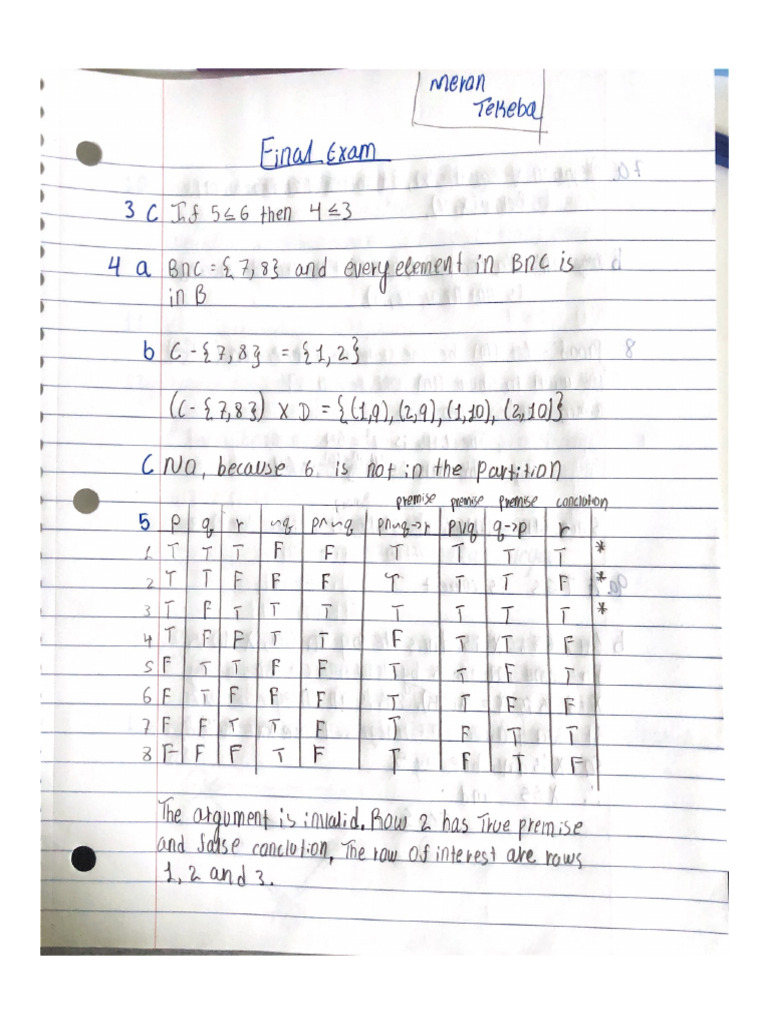 Meran
Tekeba
Final Exam
3 C If 5≤6 then 4≤3
4 a B∩C = {7,8} and every element in B∩C is
in B
b C - {7,8} = {1,2}
(C - {7,8}) X D = {(1,9), (2,9), (1,10), (2,10)}
C No, because 6 is not in the partition
premise premise premise conclution
5 p q r ~q p∧~q p∧~q→r p∨q q→p r
1 T T T F F T T T T *
2 T T F F F T T T F *
3 T F T T T T T T T *
4 T F F T T F T T F
5 F T T F F T T F T
6 F T F F F T T F F
7 F F T T F T F T T
8 F F F T F T F T F
The argument is invalid. Row 2 has True premise
and false conclution, The row of interest are rows
1, 2 and 3.